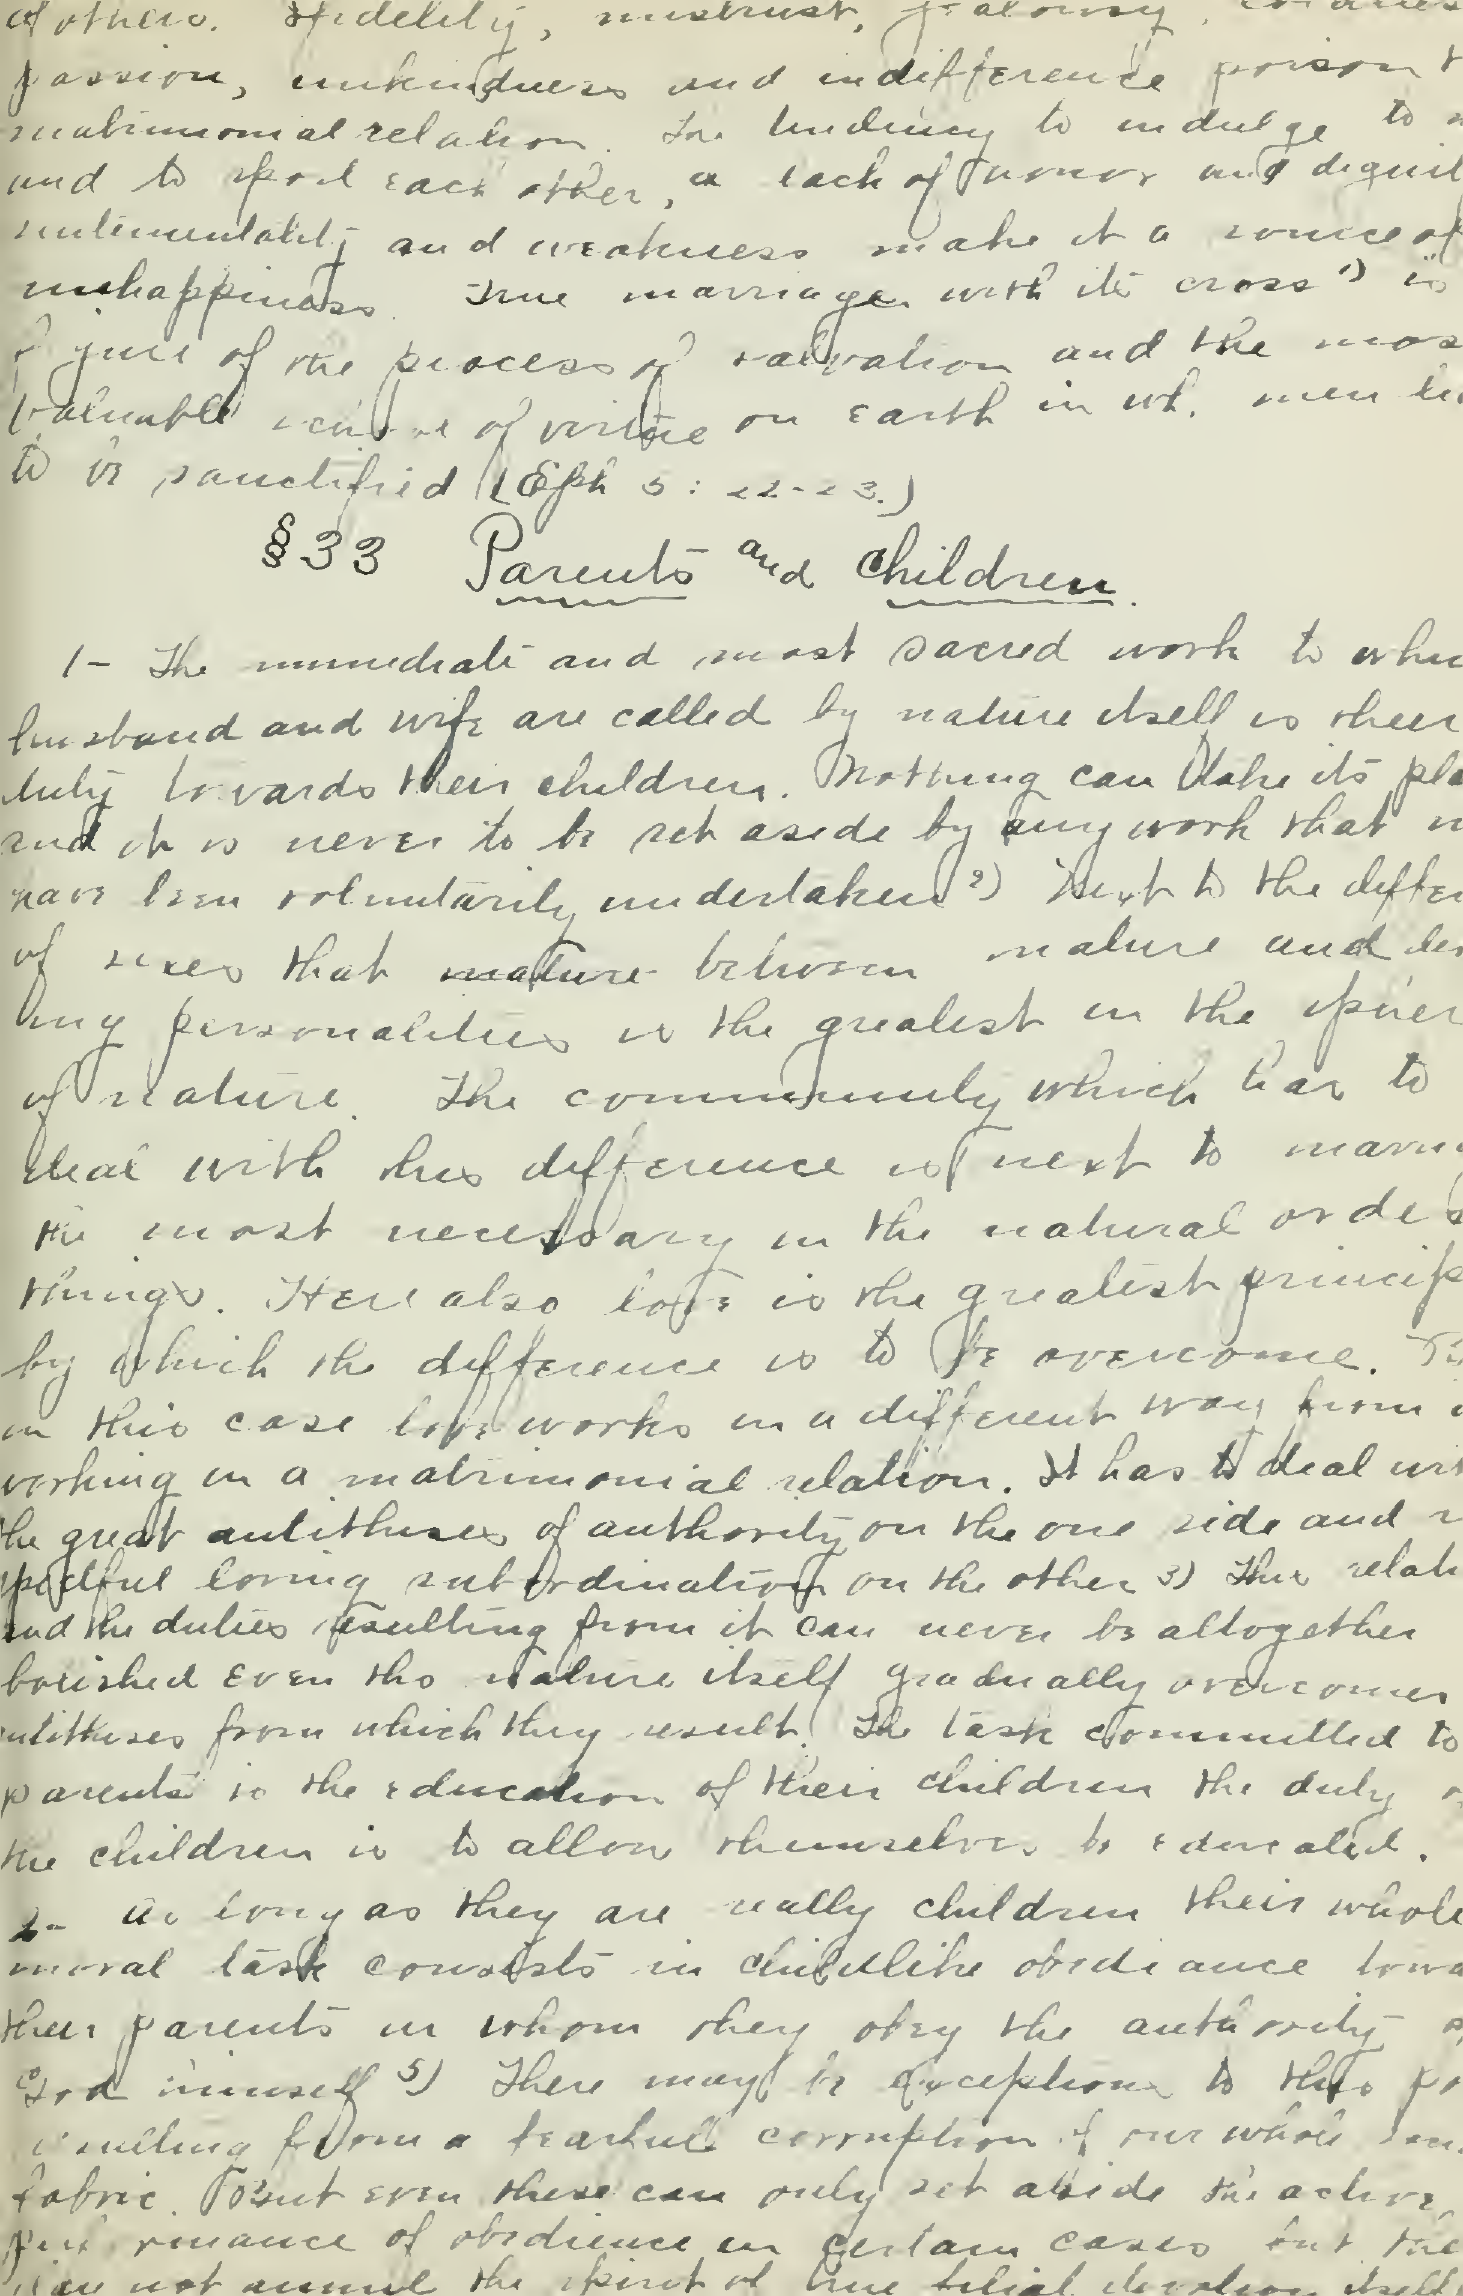 of others. Infidelity, mistrust, jealousy,
passion, unkindness and indifference poison
matrimonial relation. The tendency to indulge to
and to spoil each other, a lack of honor and
sentimentality and weakness make it a source of
unhappiness. True marriage with its cross 1) is
of the process of salvation and the
valuable of virtue on earth in wh. men
to be sanctified (Eph 5: 22-23.)
§33 Parents and Children.
1- The immediate and most sacred work to
husband and wife are called by nature itself is their
duty towards their children. Nothing can take its
and it is never to be set aside by any work that
have been voluntarily undertaken 2) Next to the
of sexes that mature between nature and
ing personalities is the greatest in the
of nature. The community which has to
deal with this difference is next to
the most necessary in the natural order
things. Here also love is the greatest
by which the difference is to be overcome.
in this case love works in a different way from
working in a matrimonial relation. It has to deal
the great antitheses of authority on the one side and
loving subordination on the other 3) This
and the duties resulting from it can never be altogether
bolished even tho nature itself gradually overcomes
antitheses from which they result. The task committed to
parents is the education of their children the duty
the children is to allow themselves be educated.
2- As long as they are really children their whole
moral task consists in childlike obediance
their parents in whom they obey the authority
God himself 5) There may be exceptions to this
from a fearful corruption of our whole
fabric. But even these can only set aside the active
of obedience in certain cases but
not annul the spirit of true filial devotion itself